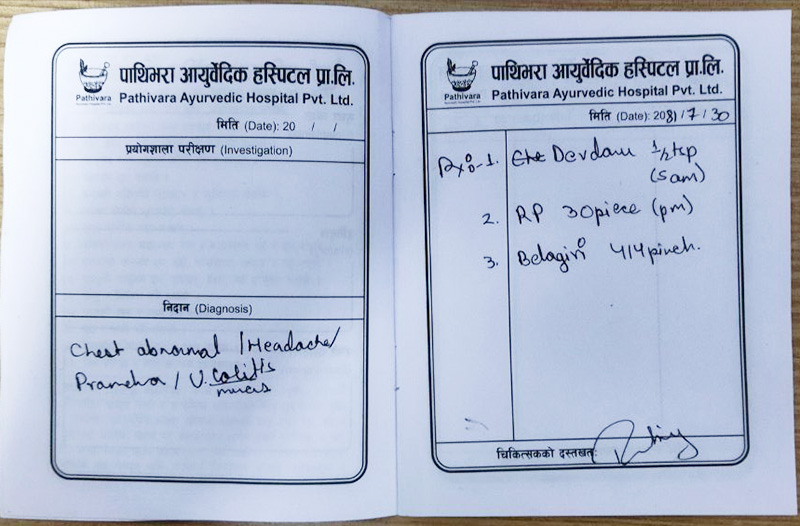 पाथिभरा आयुर्वेदिक हस्पिटल प्रा.लि.
Pathivara
Pathivara Ayurvedic Hospital Pvt. Ltd.
मिति (Date): 20 / /
प्रयोगशाला परीक्षण (Investigation)
निदान (Diagnosis)
Chest abnormal / Headache /
Prameha / U. colitis
mucus
पाथिभरा आयुर्वेदिक हस्पिटल प्रा.लि.
Pathivara
Pathivara Ayurvedic Hospital Pvt. Ltd.
मिति (Date): 2081/7/30
1. Devdaru 1/2 tsp
(5am)
2. RP 30 piece (pm)
3. Belagiri 4/4 pinch.
चिकित्सकको दस्तखतः